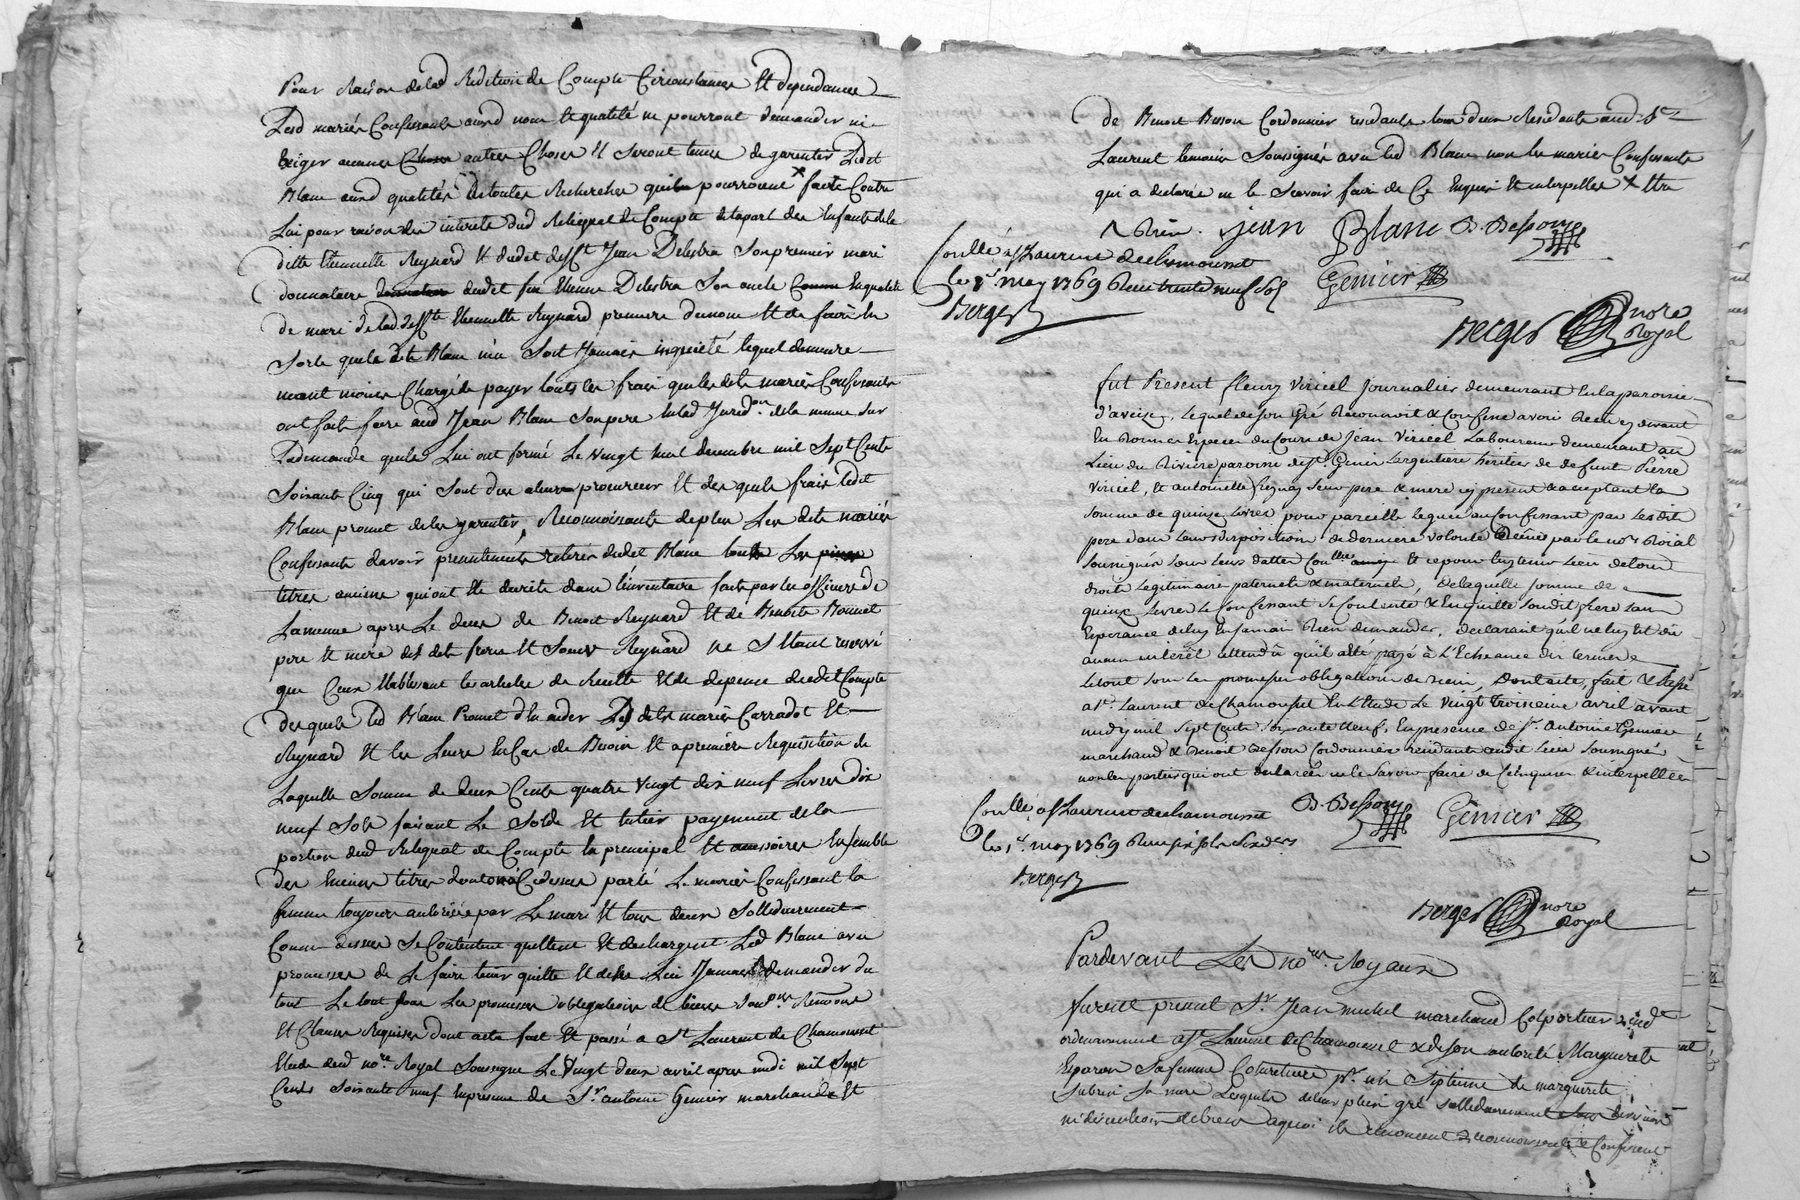 Pour Raison de lad Redition de Compte Circonstances Et dependances
Lesd mariés Confessants aud nom et qualité ne pourront demander ni
Exiger aucunes autres Choses Et seront tenus de garentir Ledt
Blanc aud qualités de toutes Recherches qui pourroient faite Contre
Lui pour raison des interets dud Reliquat de Compte de la part des Enfants de la
ditte Ettiennette Reynard Et dudit defft Jean Delestra Son premier mari
donnataire dudit feu Etienne Delestra Son oncle En qualité
de mari de lad deffte Etiennette Reynard premiere du nom Et de faire En
Sorte que le dit Blanc n'en Soit Jamais inquieté lequel demeure
neant moins Chargé de payer touts les frais que les dits mariés Confessants
ont fait faire aud Jean Blanc Son pere en lad Juredon de la menue Sur
La demande qu'ils Lui ont formé Le Vingt huit decembre mil Sept Cents
Soixante Cinq qui Sont dus a leur procureur Et des quels frais Ledit
Blanc promet de les garentir, Reconnoissants de plus Les dits mariés
Confessants d'avoir presentement retirés dudit Blanc touts Les
titres anciens qui ont Eté decrits dans l'inventaire fait par les officiers de
La menue apres Le deces de Benoit Reynard Et de Benoite Bonnet
pere Et mere des dits freres Et Soeurs Reynard ne S'Etant reservé
que Ceux Etablissant les articles de Recette Et de depence dudit Compte
des quels led Blanc Promet d'En aider Les dits mariés Carradot Et
Reynard Et les Leurs En Cas de Besoin Et a premiere Requisition de
Laquelle Somme de deux Cents quatre Vingt dix neuf Livres dix
neuf Sols faisant Le Solde Et Entier payement de la
portion dud Reliquat de Compte En principal Et accessoires Ensemble
des anciens titres dont a eté Cy dessus parlé Les mariés Confessants la
femme toujours autorisée par Le mari Et tous deux Sollidairement
Comme dessus Se Contentent quittent Et dechargent Led Blanc avec
promesses de Le faire tenir quitte Et de ne Lui Jamais demander du
tout Le tout sous Les promesses obligations de biens Soumons Renons
Et Clauses Requises dont acte fait Et passé a St Laurent de Chamousset
Etude dud nore Royal Soussigné Le Vingt deux avril apres midi mil Sept
Cents Soixante neuf En presence de Sr antoine Genier marchand Et
de Benoit Besson Cordonnier residants tous deux Residants aud St
Laurent temoins Soussignés avec led Blanc non les mariés Confessants
qui a declaré ne le Scavoir faire de Ce Enquis Et interpellés
jean Blanc B. Besson
Conllé a St Laurent de chamousset
le 1er may 1769 Reçu trente neuf Sols
Genier
Berger
Berger nore
Royal
fut Present fleury Viricel journalier demeurant En la paroisse
d'aveize, Lequel de son Gré Reconnoit & Confesse avoir Recu cy devant
En Bonnes Especes du Cours de jean Viricel Laboureur demeurant au
Lieu du Riviere paroisse de St Genis Largentiere héritier de defunt Pierre
Viricel, & antoinette Ses pere & mere cy present & acceptant La
somme de quinze Livres pour pareille leguée au Confessant par Lesdits
pere dans leurs disposition de derniere volonté Reçus par le nore Roial
soussigné sous leurs dattes Et ce pour luy tenir Lieu de tous
droits Legitimaires paternels & maternels, de laquelle somme de
quinze Livres Le Confessant Se Contente & En quitte Son dit frere Sans
Esperance de luy En jamais Rien demander, declarant qu'il ne luy Est dû
aucun interêt attendû qu'il a été payé à l'Echeance du terme
Letout sous les promesses obligations de biens, Dont acte, fait & passé
a St Laurent de Chamousset En l'Etude Le Vingt Troisieme avril avant
midy mil Sept Cents Soixante neuf, En presence de Sr antoine Genier
marchand & Benoit Besson Cordonnier residants audit Lieu soussignés
non les parties qui ont declarées ne le Savoir faire de Ce enquises & interpellées
Conllé a St Laurent de chamousset
le 1er may 1769 Reçu six sols six drs
B. Besson Genier
Berger
Berger nore
Royal
Pardevant Les nores Royaux
furent present Sr Jean michel marchand Colporteur
ordinairement a St Laurent de Chamousset & de Son autorité Marguerite
Esparon Sa femme Couturiere
Subrin Sa mere Lesquels de leur plein gré sollidairement sans division
ni discution de biens a quoi ils renoncent reconnoissent & Confessent